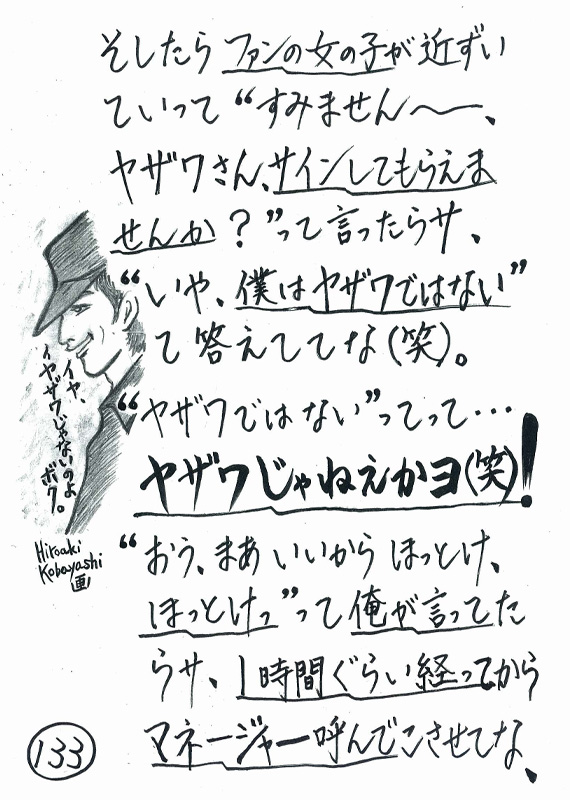 そしたらファンの女の子が近ずい
ていって“すみません〜、
ヤザワさん、サインしてもらえま
せんか？”って言ったらサ、
“いや、僕はヤザワではない”
て答えててな（笑）。
“ヤザワではない”ってって…
ヤザワじゃねえかヨ（笑）！
“おう、まあいいからほっとけ、
ほっとけっ”って俺が言ってた
らサ、1時間ぐらい経ってから
マネージャー呼んでこさせてな、
イヤ、
ィヤザワじゃないのよ
ボク。
Hiroaki
Kobayashi
画
133